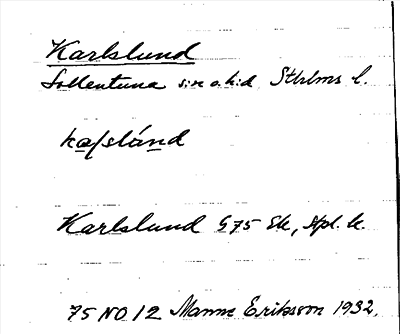 Karlslund
Sollentuna sn o hd Sthlms l.
Karlslund G75 Ek, hpl. k.
75 NO 12 Manne Eriksson 1932.